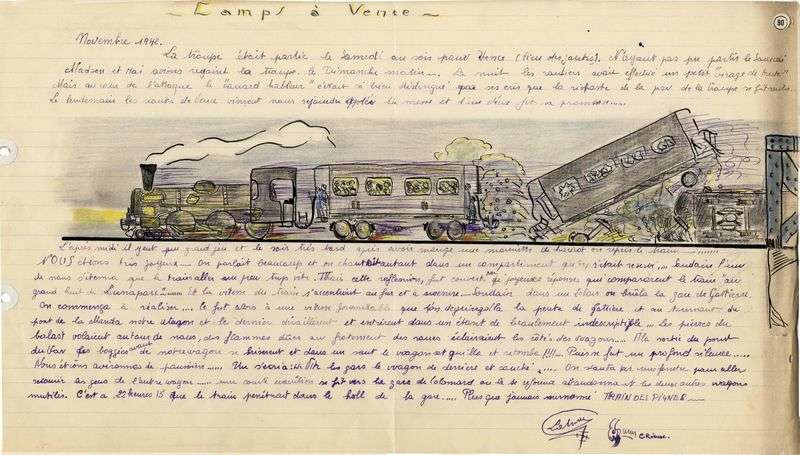 Camps à Vence
90
Novembre 1942.
La troupe était partie le Samedi au soir pour Vence (lieu des joutes). N'ayant pas pu partir le Samedi
Madsen et Moi avions rejoint la troupe le Dimanche matin.... La nuit les routiers avait effectué un petit
Mais au cours de l'attaque le "canard hableur" s'était si bien distingué par ses cris que la riposte de la part de la troupe se fit
Le lendemain les scouts de Vence vinrent nous rejoindre après la messe et
L'après midi il y eut un grand jeu et le soir très tard après avoir mangé une marmite de haricot on reprit le train
NOUS étions très joyeux... On parlait beaucoup et on chantait autant dans un compartiment qu'on s'était réservé.... Soudain l'un
de nous s'étonna que le train allait un peu trop vite. Mais cette réflexion, fut couverte par de joyeuses réponses qui comparèrent le train au
grand huit de Lunaparc.... Et la vitesse du train s'accentuait au fur et à mesure... Soudain dans un éclair on brûla la gare de Gattières
On commença à réaliser.... Ce fut alors à une vitesse formidable que l'on dégringola la pente de Gattières et au tournant du
pont de la Manda notre wagon et le dernier déraillent et entrèrent dans un état de branlement indescriptible... Les pierres du
balast volaient autour de nous, des flammes dûes au frottement des roues éclairaient les côtés des wagons.... A la sortie du pont
du Var des bogies avant de notre wagon se brisent et dans un saut le wagon est quille et retombe!!!.. Puis se fut un profond silence.....
Nous étions environnés de poussière..... Un s'écria: "les gars le wagon de derrière est couché".... On sauta par une fenêtre pour aller
secourir les gens de l'autre wagon..... une course se fit vers la gare de Colomard où le se reforma abandonnant les deux autres wagons
mutilés. C'est à 22 heures 15 que le train pénétrait dans le hall de la gare.... Plus que jamais surnommé TRAIN DES PIGNES